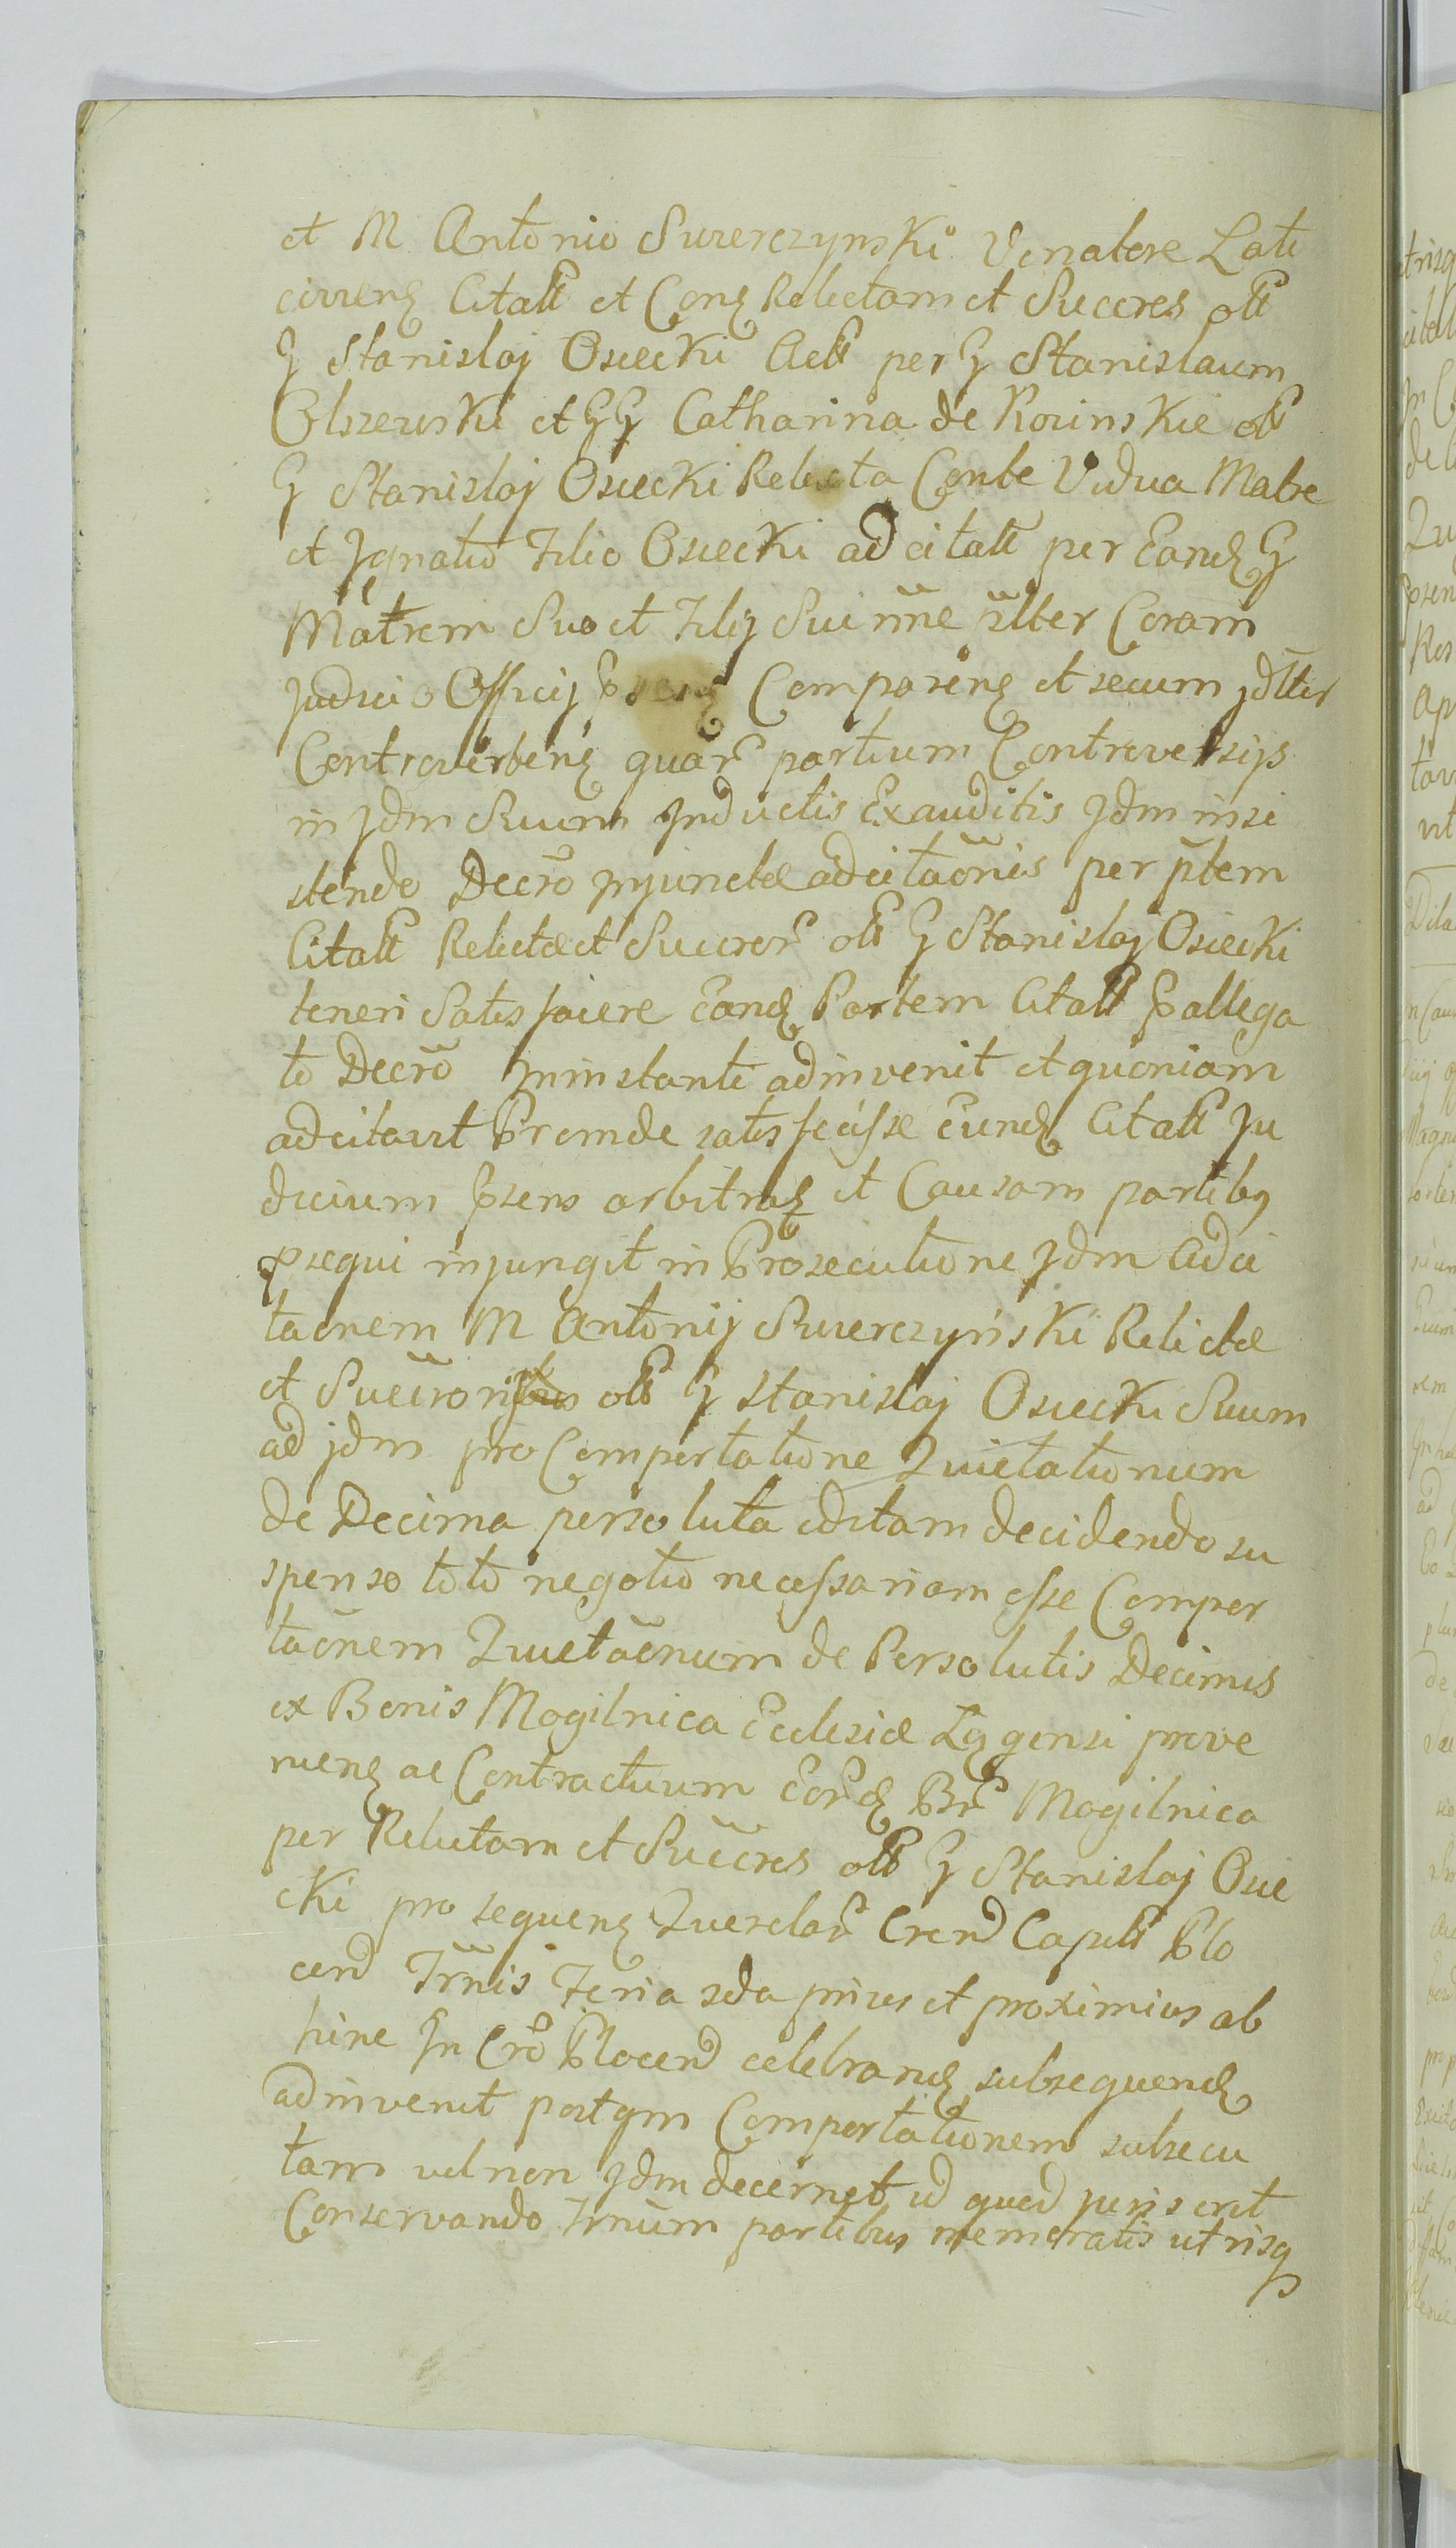 et M Antonio Swierczynski Venatore Lati
civiens Citatt et Cong Relictam et Succres olt
G Stanislaj Osiecki Actt per G Stanislaum
Olszewski et GG Catharina de Kowinskie olt
G Stanislaj Osiecki Relicta Conte Vidua Matre
et Jgnatio Filio Osiecki adcitatt per Eand G
Matrem Suo et Filij Sui nne plter Coram
Judicio Officij Comparens et secum jdlter
Controverteng quar partium Controversijs
in Jdm Suum Jnductis Exauditis Jdm insi
stendo Decro Jnjunctæ adcitaõnis per ptem
Citatt Relictæ et Succror olt G Stanislaj Osiecki
teneri Satisfacere Eand Partem Citatt Pallega
to Decro Jninstanti adinvenit et quoniam
adcitavit Proinde satisfecisse Eund Citatt Ju
dicium Psens arbitrag et Causam partibq
psequi injungit in Prosecutione Jdm Adci
taonem M Antonij Swierczyński Relictæ
et Succror olt G Stanislaj Osiecki Suum
ad jdm pro Comportatione Quietationum
de Decima persoluta editam decidendo su
spenso toto negotio necessariam esse Compor
taõnem Quietaõnum de Persolutis Decimis
ex Bonis Mogilnica Ecclesiæ Lggensi prove
nieng ac Contractuum Eord Br Mogilnica
per Relictam et Succres olt G Stanislaj Osie
cki pro sequeng Querelar Crend Capitt Plo
cend Trnis Feria sda prius et proximius ab
hinc Jn Cro Plocend celebrand subsequend
adinvenit postqm Comportationem subsecu
tam vel non Jdm decernet id quod juris erit
Conservando Trnum partibus memoratis utrisq